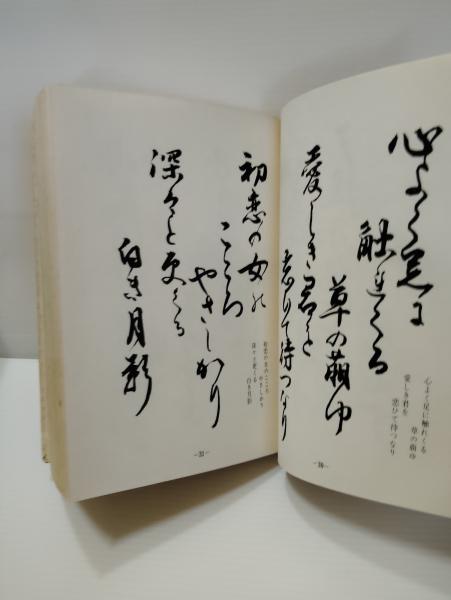 心よく足に
触れくる
草の萌ゆ
愛しき君を
恋ひて待つなり
心よく足に触れくる
草の萌ゆ
愛しき君を
恋ひて待つなり
—30—
初恋の女の
こころ
やさしかり
深々と更くる
白き月影
初恋の女のこころ
やさしかり
深々と更くる
白き月影
—31—